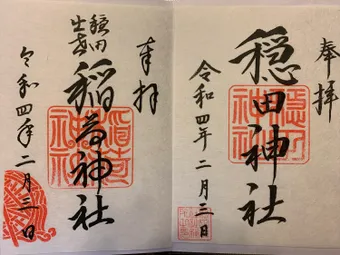 奉拝
穏田神社
令和四年二月三日
奉拝
穏田
出世
稲荷神社
令和四年二月三日
稲荷神社